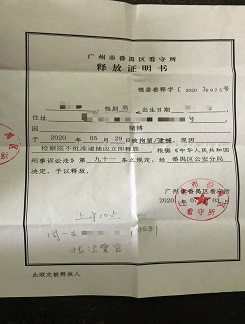 广州市番禺区看守所
释放证明书
穗番看释字〔2020〕0975号
性别 男 出生日期
住址
因 赌博
于 2020 年 05 月 29 日被拘留/逮捕，现因
检察院不批准逮捕应立即释放 ，根据《中华人民共和国
刑事诉讼法》第 九十一 条之规定，经 番禺区公安分局
决定，予以释放。
广州市番禺区看守所
看守所
上午10点
周一
警官
此联交被释放人